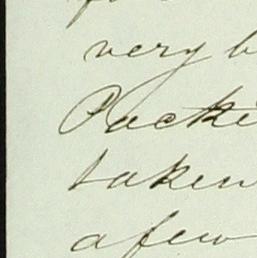 very b
Packe
taken
a few